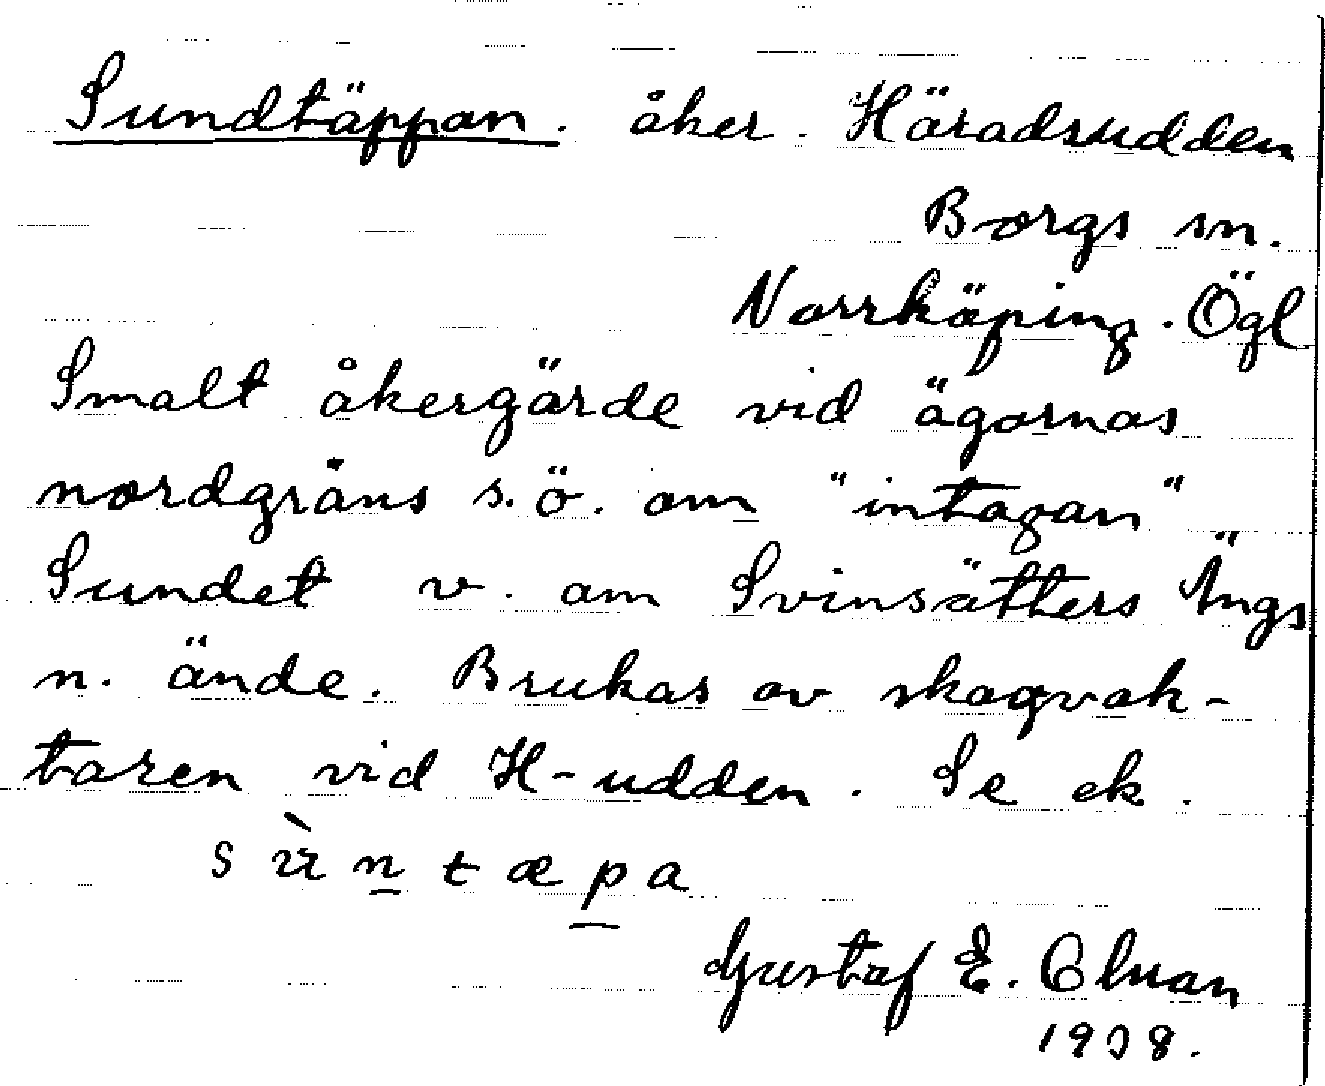 Sundtäppan. åker. Häradsudden
Borgs sn.
Norrköping. Ögl
Smalt åkergärde vid ägornas
nordgräns s.ö. om "intagan"
Sundet v. om Svinsätters Ängs
n. ände. Brukas av skogvak-
taren vid H-udden. Se ek.
s ù n t æ p a
Gustaf E.